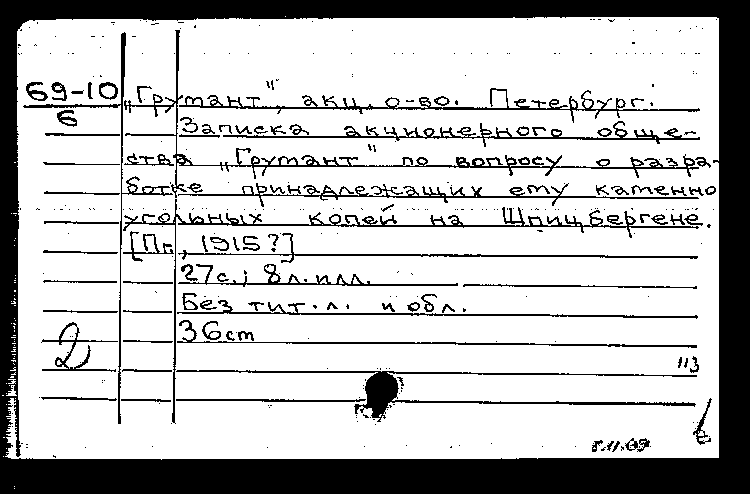 69-10
6
„Грумант", акц. о-во. Петербург.
Записка акционерного обще-
ства „Грумант" по вопросу о разра-
ботке принадлежащих ему каменно
угольных копей на Шпицбергене.
[Пг., 1915?]
27с.; 8 л. илл.
Без тит. л. и обл.
36cm
2
113